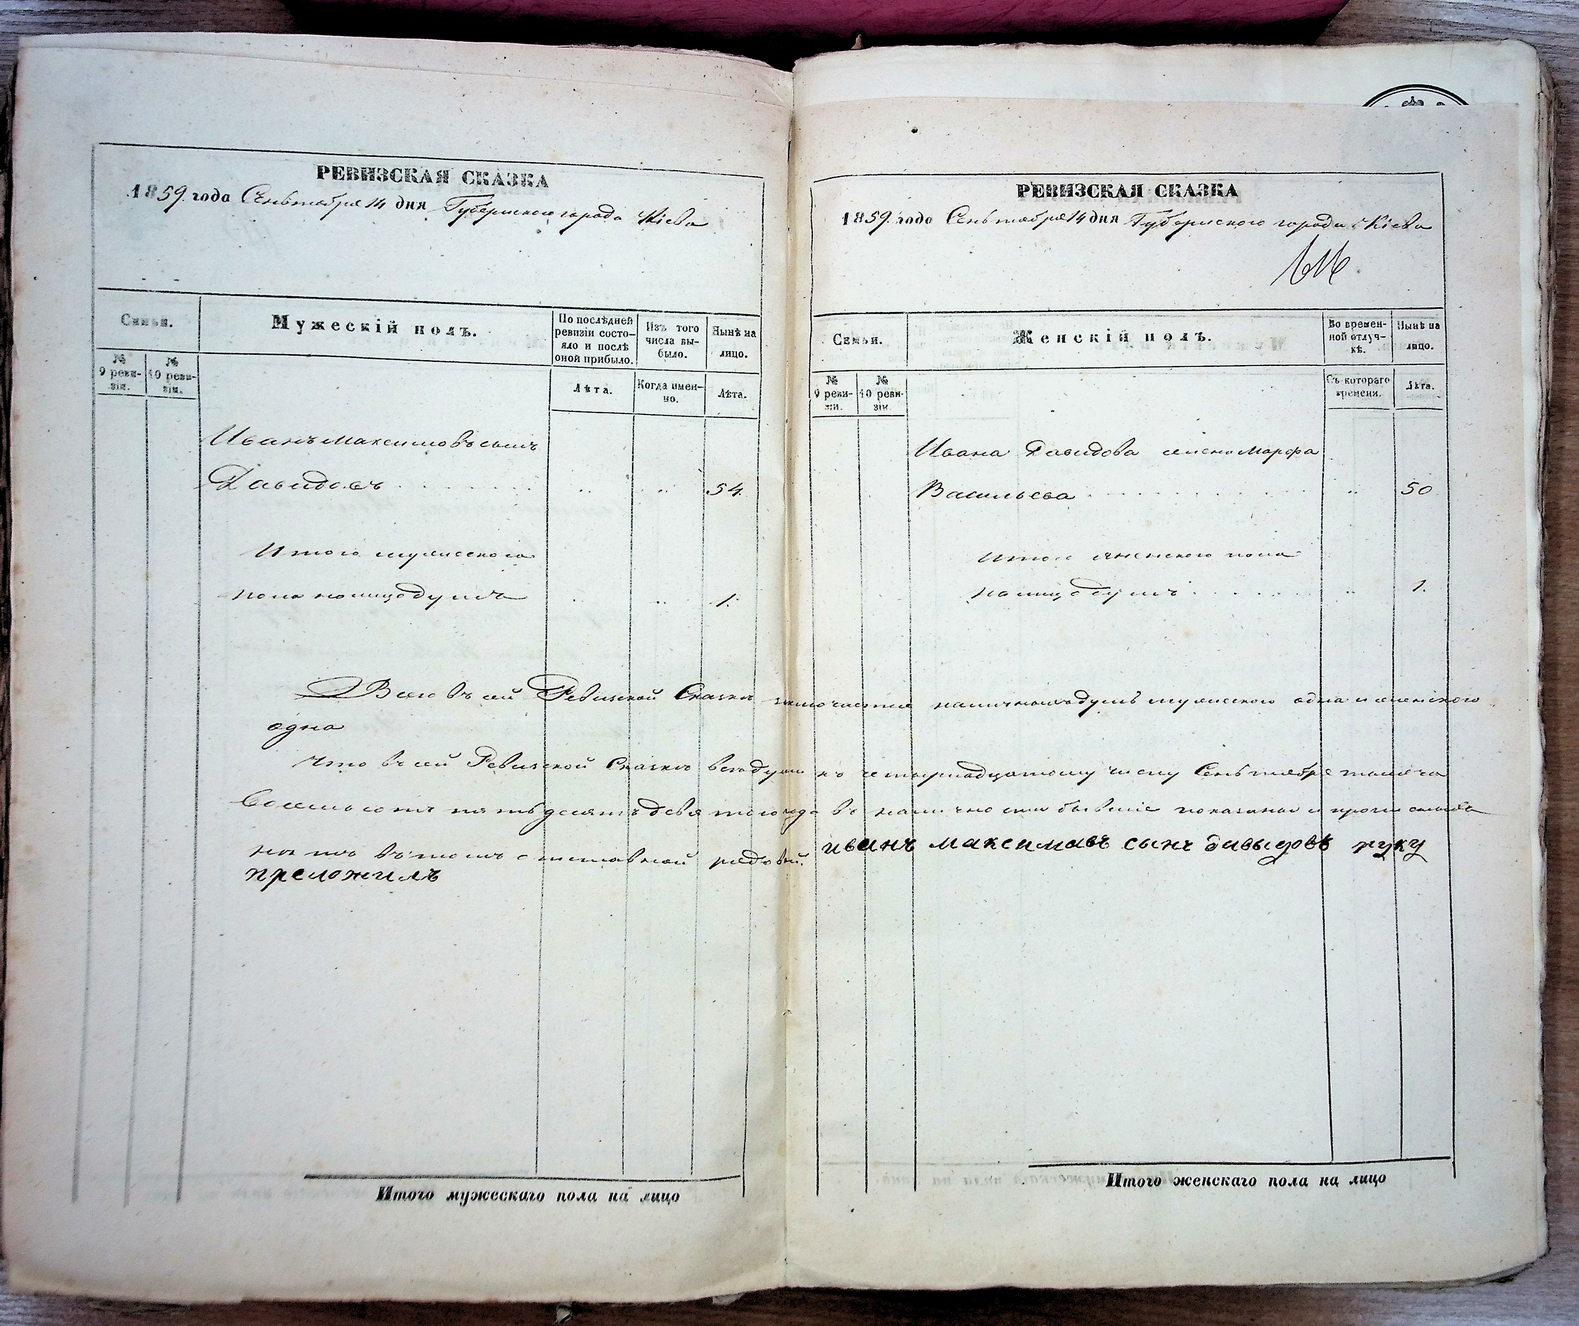 РЕВИЗСКАЯ СКАЗКА
1859 года Сентября 14 дня Губернского города Кіева
Семьи.
Мужескій полъ.
По послѣдней ревизіи состояло и послѣ оной прибыло.
Изъ того числа выбыло.
Нынѣ на лицо.
№ 9 ревизіи.
№ 10 ревизіи.
Лѣта.
Когда именно.
Лѣта.
Иванъ Максимовъ сынъ
Давидовъ 54
Итого мужеского
пола на лице душъ 1.
РЕВИЗСКАЯ СКАЗКА
1859 года Сентября 14 дня Губернского города Кіева
Семьи.
Женскій полъ.
Во временной отлучкѣ.
Нынѣ на лицо.
№ 9 ревизіи.
№ 10 ревизіи.
Съ котораго времени.
Лѣта.
Ивана Давидова жена Марфа
Васильева 50
Итого женского пола
на лице душъ 1.
Всего въ сей Ревизской Сказкѣ наличныхъ душъ мужеского одна и женского
одна
Что въ сей Ревизской Сказкѣ всѣ души къ четырнадцатому числу Сентября тысяча
восемьсотъ пятьдесятъ девятого года въ наличности бывшіе показаны и
въ томъ иванъ максимавъ сынъ давыдовъ руку
преложилъ
Итого мужескаго пола на лицо
Итого женскаго пола на лицо